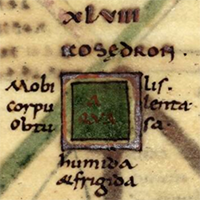 XLVIII
COSEDRON
Mobi lis
corpu lenta
A
QVA
obtu sa
humida
&frigida